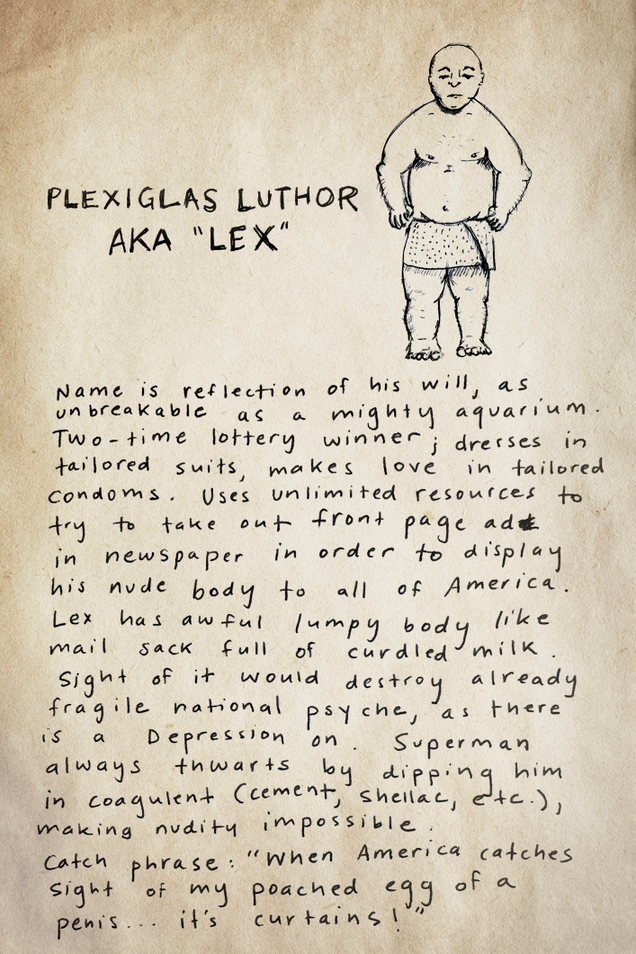 PLEXIGLAS LUTHOR
AKA "LEX"
Name is reflection of his will, as
unbreakable as a mighty aquarium.
Two-time lottery winner; dresses in
tailored suits, makes love in tailored
condoms. Uses unlimited resources to
try to take out front page ad
in newspaper in order to display
his nude body to all of America.
Lex has awful lumpy body like
mail sack full of curdled milk.
Sight of it would destroy already
fragile national psyche, as there
is a Depression on. Superman
always thwarts by dipping him
in coagulent (cement, shellac, etc.),
making nudity impossible.
Catch phrase: "When America catches
sight of my poached egg of a
penis... it's curtains!"